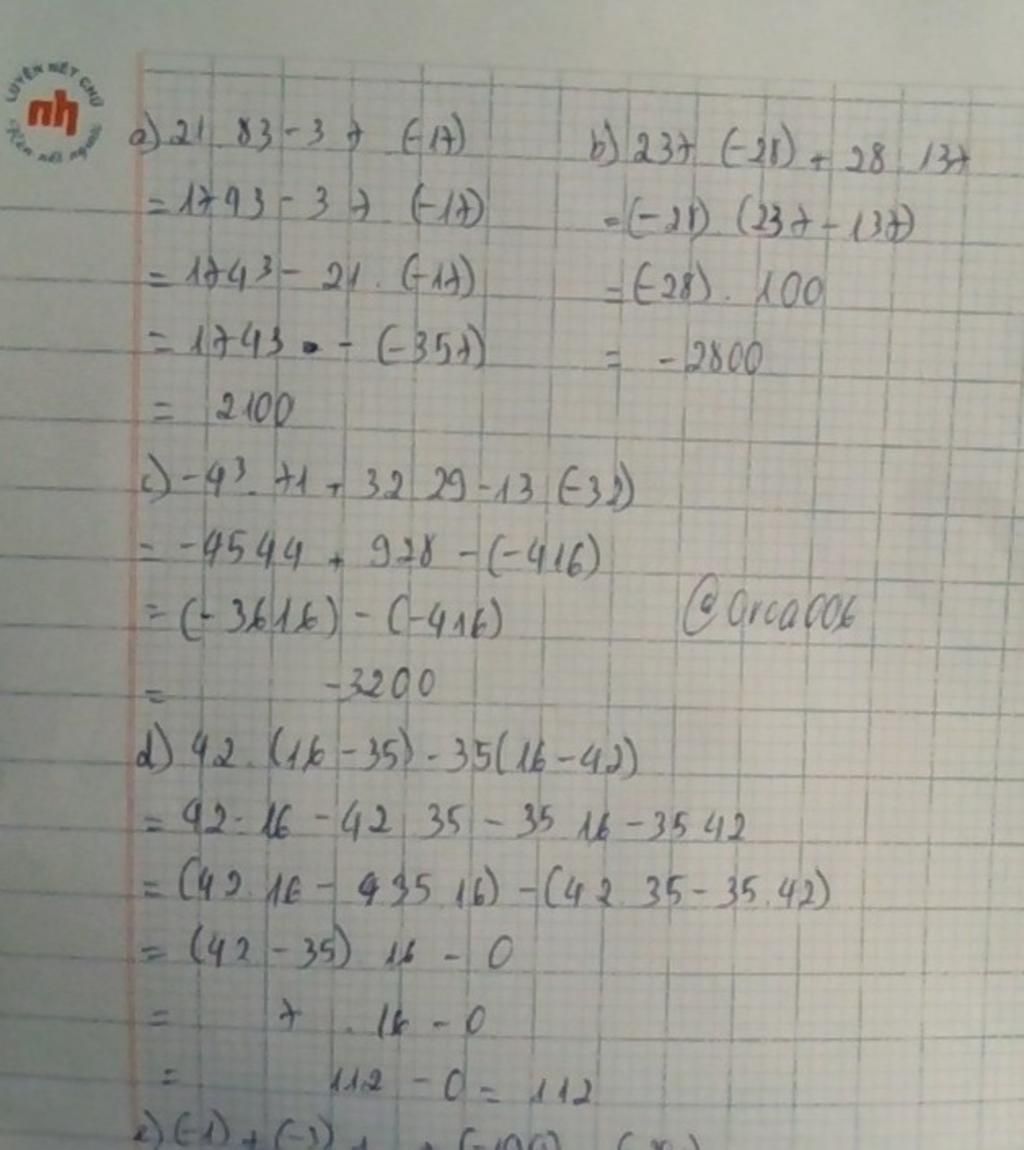 LUYỆN NÉT CHỮ
nh
Rèn nết người
a) 21 83 - 3 7 (-17)
= 1743 - 3 7 (-17)
= 1743 - 21 . (-17)
= 1743 - (-357)
= 2100
b) 237 (-28) + 28 137
= (-28) (237 - 137)
= (-28) . 100
= -2800
c) -43 . 71 + 32 29 - 13 (-32)
= -4544 + 928 - (-416)
= (-3616) - (-416)
= -3200
@Orca006
d) 42 . (16 - 35) - 35(16 - 42)
= 42 . 16 - 42 35 - 35 16 - 35 42
= (42 . 16 - 35 16) - (42 35 - 35 . 42)
= (42 - 35) 16 - 0
= 7 . 16 - 0
= 112 - 0 = 112